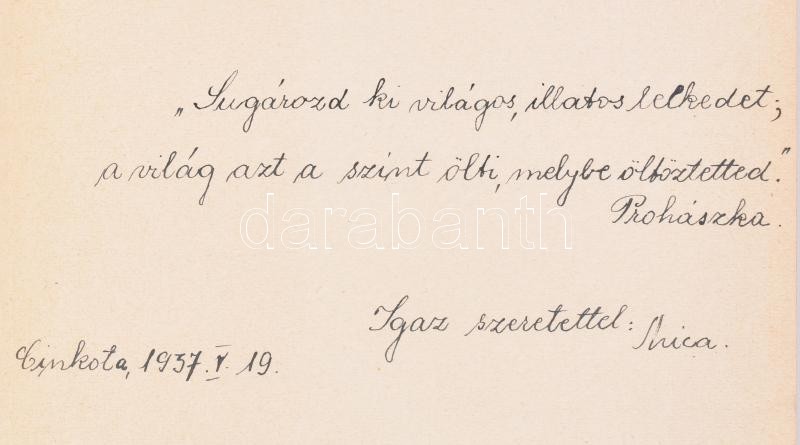 „Sugározd ki világos, illatos lelkedet;
a világ azt a színt ölti, melybe öltöztetted."
Prohászka.
darabanth
Igaz szeretettel:
Cinkota, 1937. V. 19.